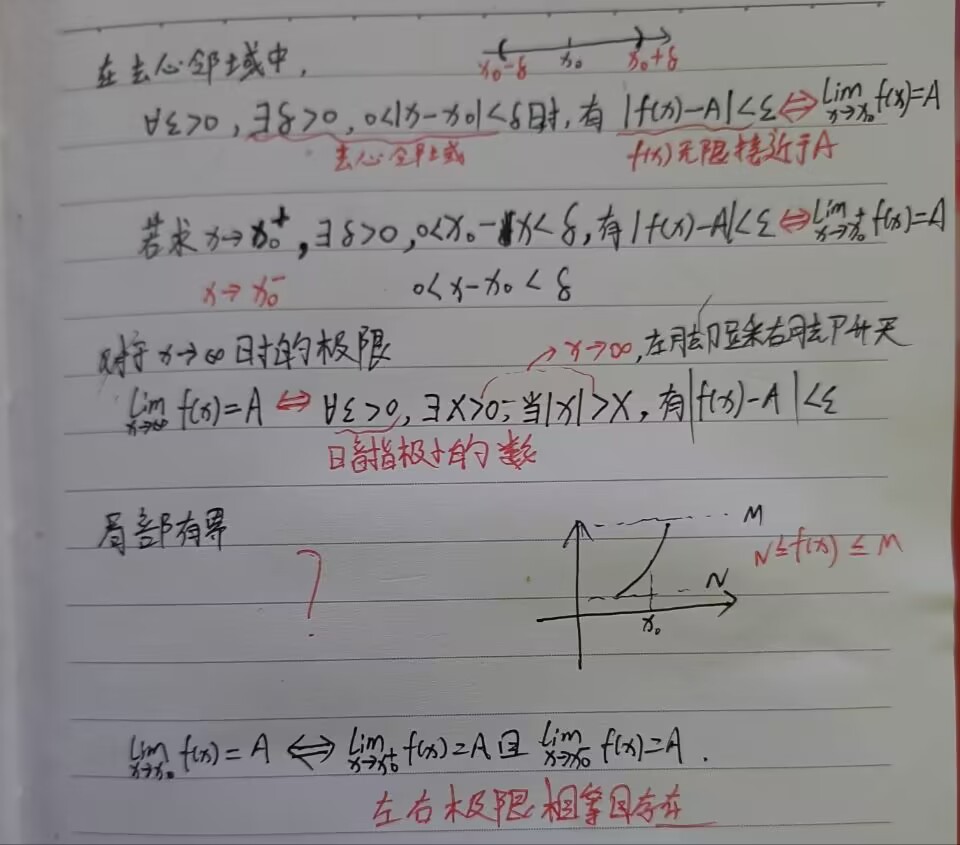 在去心邻域中,
x₀-δ x₀ x₀+δ
∀ε>0, ∃δ>0, 0<|x-x₀|<δ时, 有 |f(x)-A|<ε⇔lim x→x₀ f(x)=A
去心邻域 f(x)无限接近于A
若求 x→x₀⁺, ∃δ>0, 0<x₀-x<δ, 有|f(x)-A|<ε⇔lim x→x₀⁺ f(x)=A
x→x₀⁻ 0<x-x₀<δ
对于x→∞时的极限
→x→∞, 左
lim x→∞ f(x)=A ⇔ ∀ε>0, ∃X>0; 当|x|>X, 有|f(x)-A|<ε
指极小的数
局部有界
?
M
N≤f(x)≤M
N
x₀
lim x→x₀ f(x)=A ⇔ lim x→x₀⁺ f(x)=A 且 lim x→x₀⁻ f(x)=A.
左右极限相等且存在